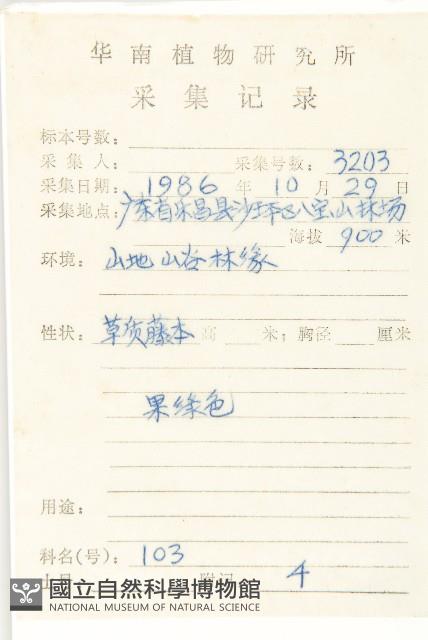 华南植物研究所
采集记录
标本号数：
采集人： 采集号数：3203
采集日期：1986年10月29日
采集地点：广东省乐昌县沙坪区八宝山林场
海拔 900 米
环境：山地山谷林缘
性状：草质藤本 高 米；胸径 厘米
果绿色
用途：
科名(号)：103
4
國立自然科學博物館
NATIONAL MUSEUM OF NATURAL SCIENCE